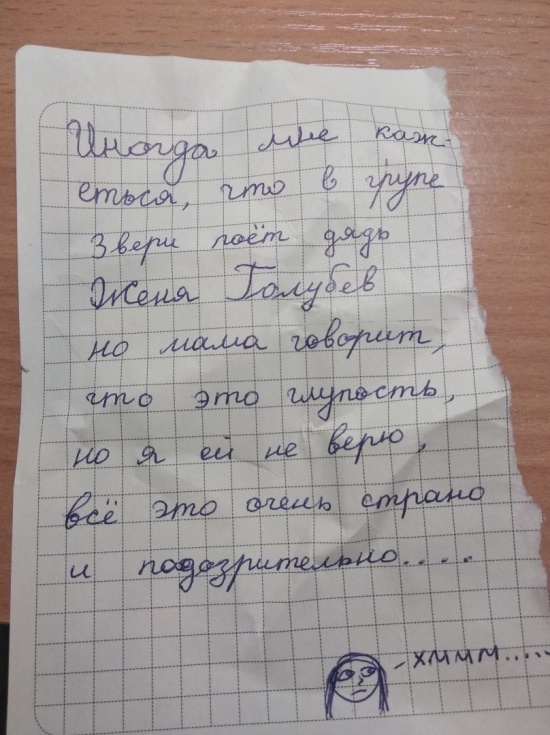 Иногда мне каж-
еться, что в групе
Звери поёт дядь
Женя Голубев
но мама говорит,
что это глупость,
но я ей не верю,
всё это очень страно
и подозрительно....
- хммм.....